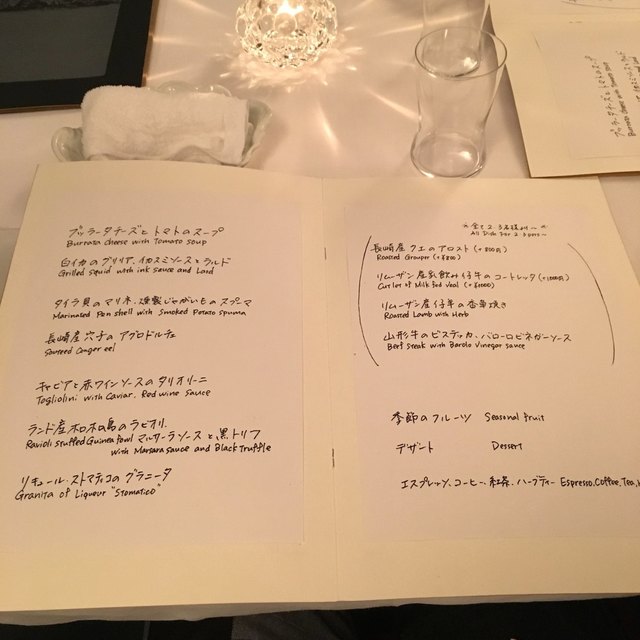 ブッラータチーズとトマトのスープ
Burrata cheese with Tomato soup
白イカのグリリア、イカスミソースとラルド
Grilled squid with ink sauce and Lard
タイラ貝のマリネ、燻製じゃがいものスプマ
Marinated Pen shell with Smoked Potato spuma
長崎産 穴子のアグロドルチェ
Soureed Conger eel
キャビアと赤ワインソースのタリオリーニ
Tagliolini with Caviar. Red wine sauce
ランド産ホロホロ鳥のラビオリ、
Ravioli stuffed Guinea fowl マルサーラソースと黒トリフ
with Marsara sauce and Black Truffle
リキュール、ストマティコのグラニータ
Granita of Liqueur "Stomatico"
All Dish For 2 3 pers~
長崎産 クエのアロスト (+800円)
Roasted Grouper (+¥800)
リムーザン産乳飲み仔牛のコートレッタ (+1000円)
Cutlet of Milk fed veal (+¥1000)
リムーザン産仔羊の香草焼き
Roasted Lamb with Herb
山形牛のビステッカ、バローロビネガーソース
Beef steak with Barolo Vinegar sauce
季節のフルーツ Seasonal fruit
デザート Dessert
エスプレッソ、コーヒー、紅茶、ハーブティー Espresso, Coffee, Tea,
ブッラータチーズとトマトのスープ
Burrata cheese with Tomato soup